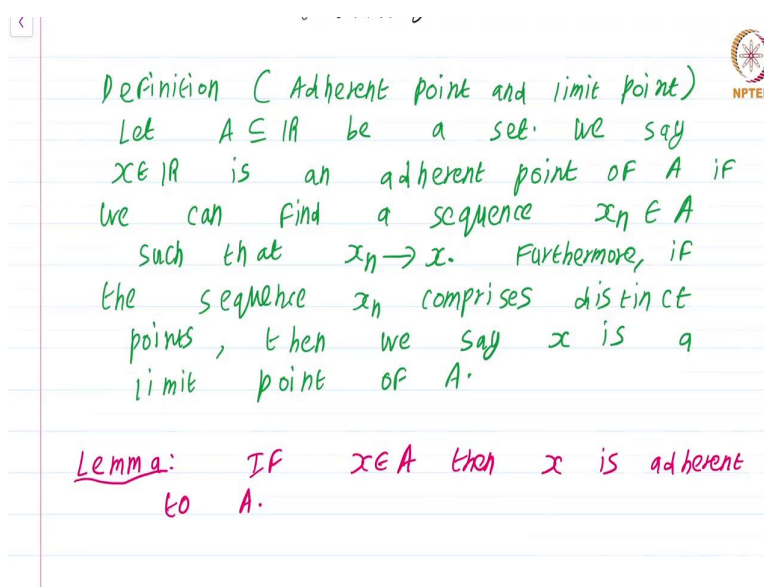 Definition ( Adherent point and limit point)
NPTE
Let A ⊆ ℝ be a set. We say
x ∈ ℝ is an adherent point of A if
we can find a sequence xₙ ∈ A
such that xₙ → x. Furthermore, if
the sequence xₙ comprises distinct
points, then we say x is a
limit point of A.
Lemma: If x ∈ A then x is adherent
to A.